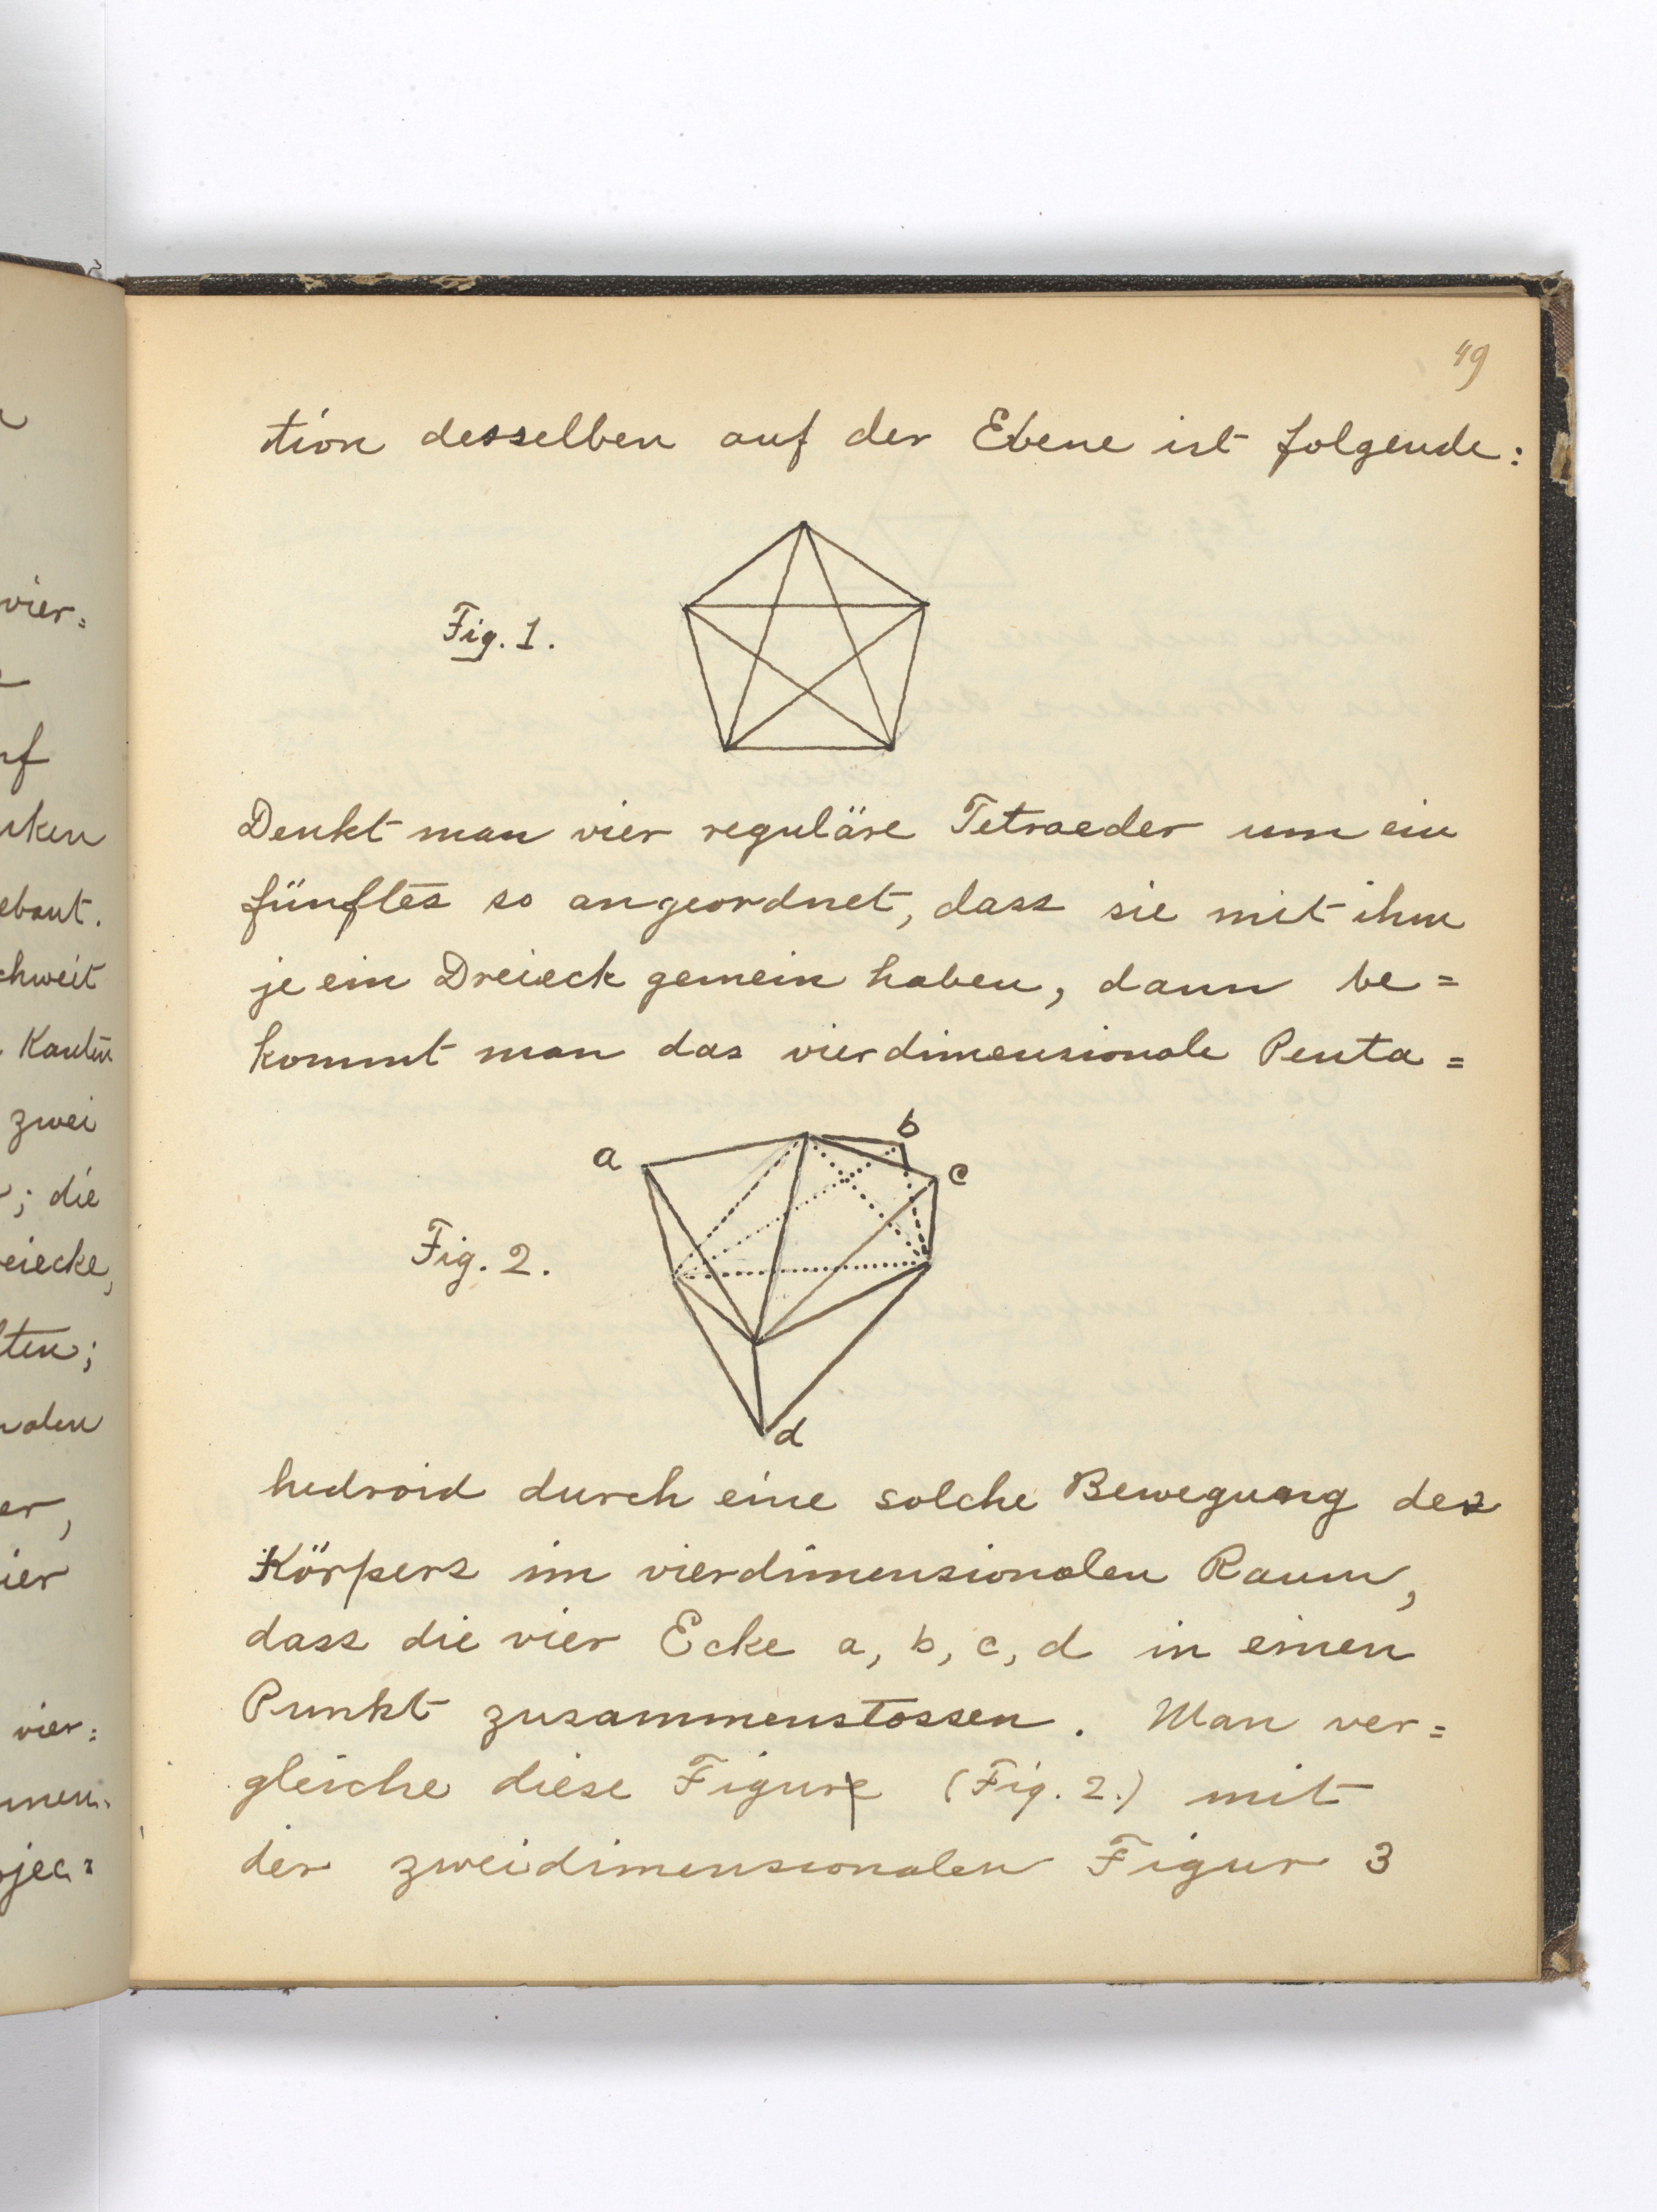 vier=
rf
cken
ebaut.
chweit
Kanten
zwei
; die
eiecke,
lten;
nalen
er,
ier
vier=
men.
ojec=
49
tion desselben auf der Ebene ist folgende:
Fig. 1.
Denkt man vier reguläre Tetraeder um ein
fünftes so angeordnet, dass sie mit ihm
je ein Dreieck gemein haben, dann be=
kommt man das vierdimensionale Penta=
a
b
c
Fig. 2.
d
hedroid durch eine solche Bewegung des
Körpers im vierdimensionalen Raum,
dass die vier Ecke a, b, c, d in einen
Punkt zusammenstossen. Man ver=
gleiche diese Figur (Fig. 2.) mit
der zweidimensionalen Figur 3